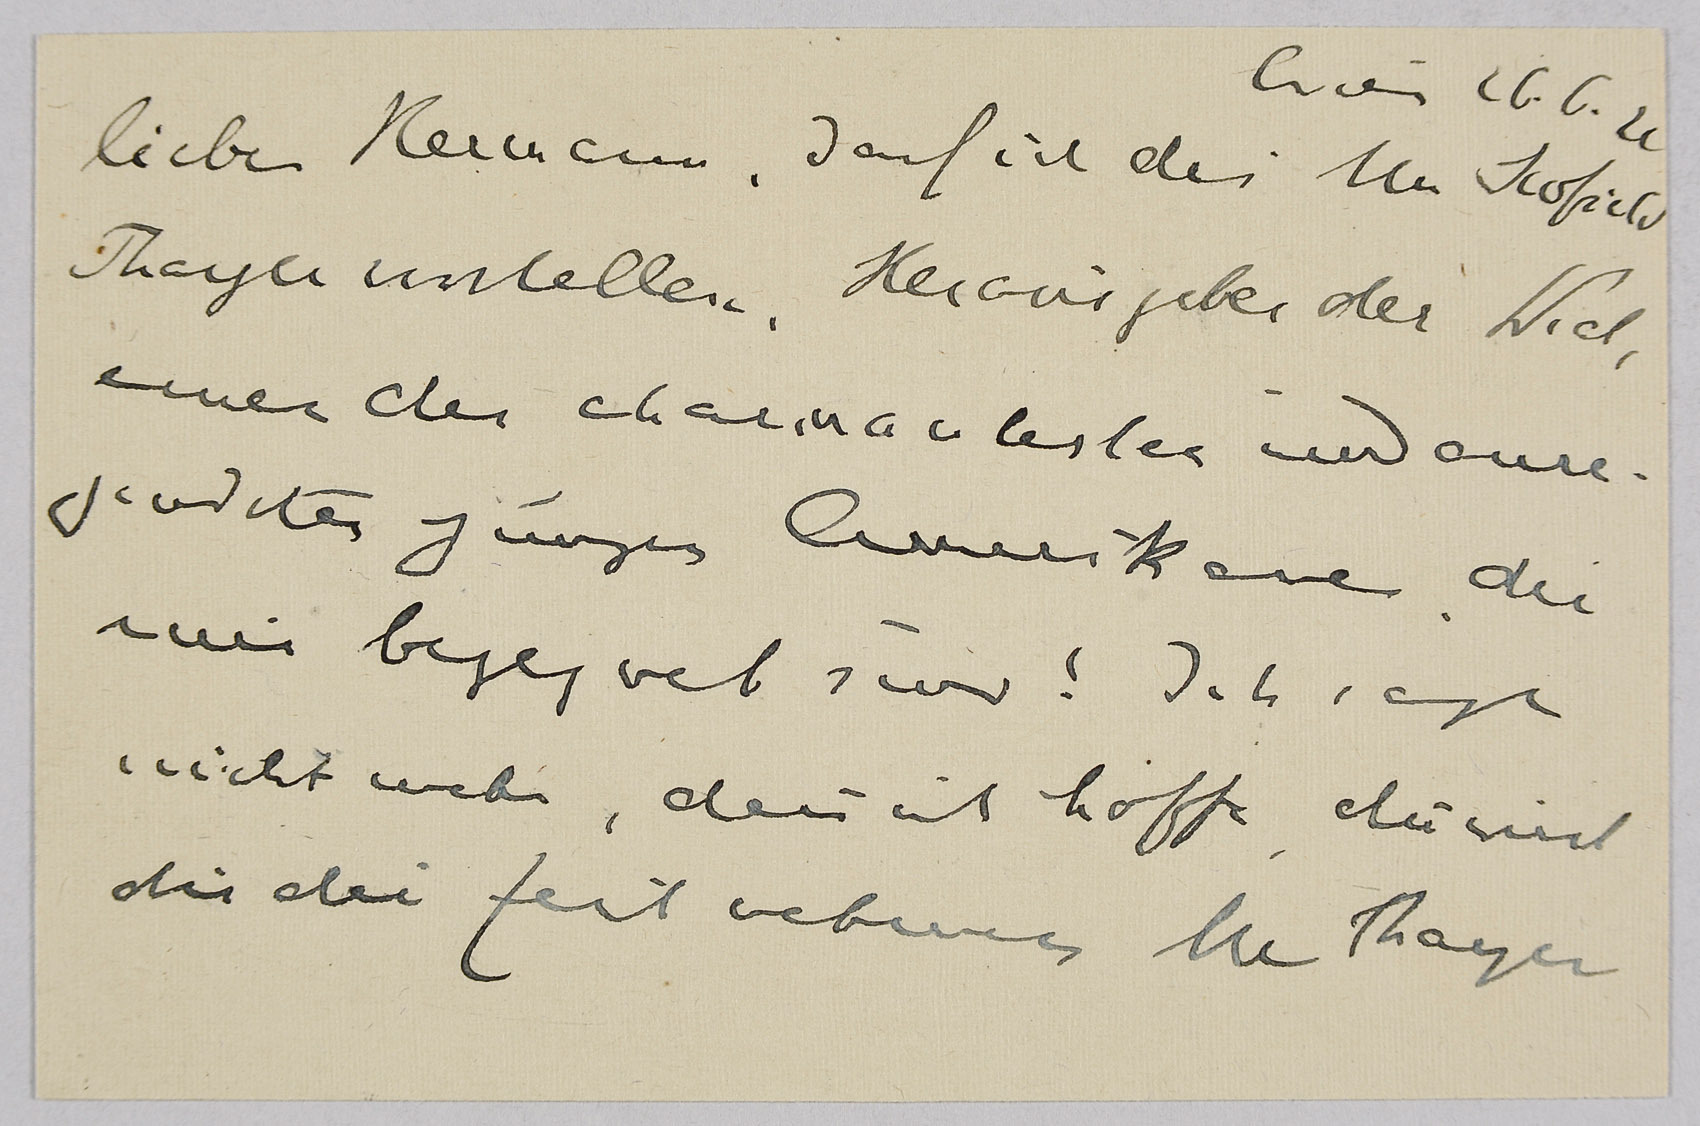 Wien 26.6.22
lieber Hermann, darf ich dir Mr Scofield
Thayer vorstellen, Herausgeber der Dial,
einen der charmantesten und anre-
gendsten jungen Amerikaner, die
mir begegnet sind! Ich sage
nicht mehr, denn ich hoffe, du wirst
dir die Zeit nehmen Mr Thayer